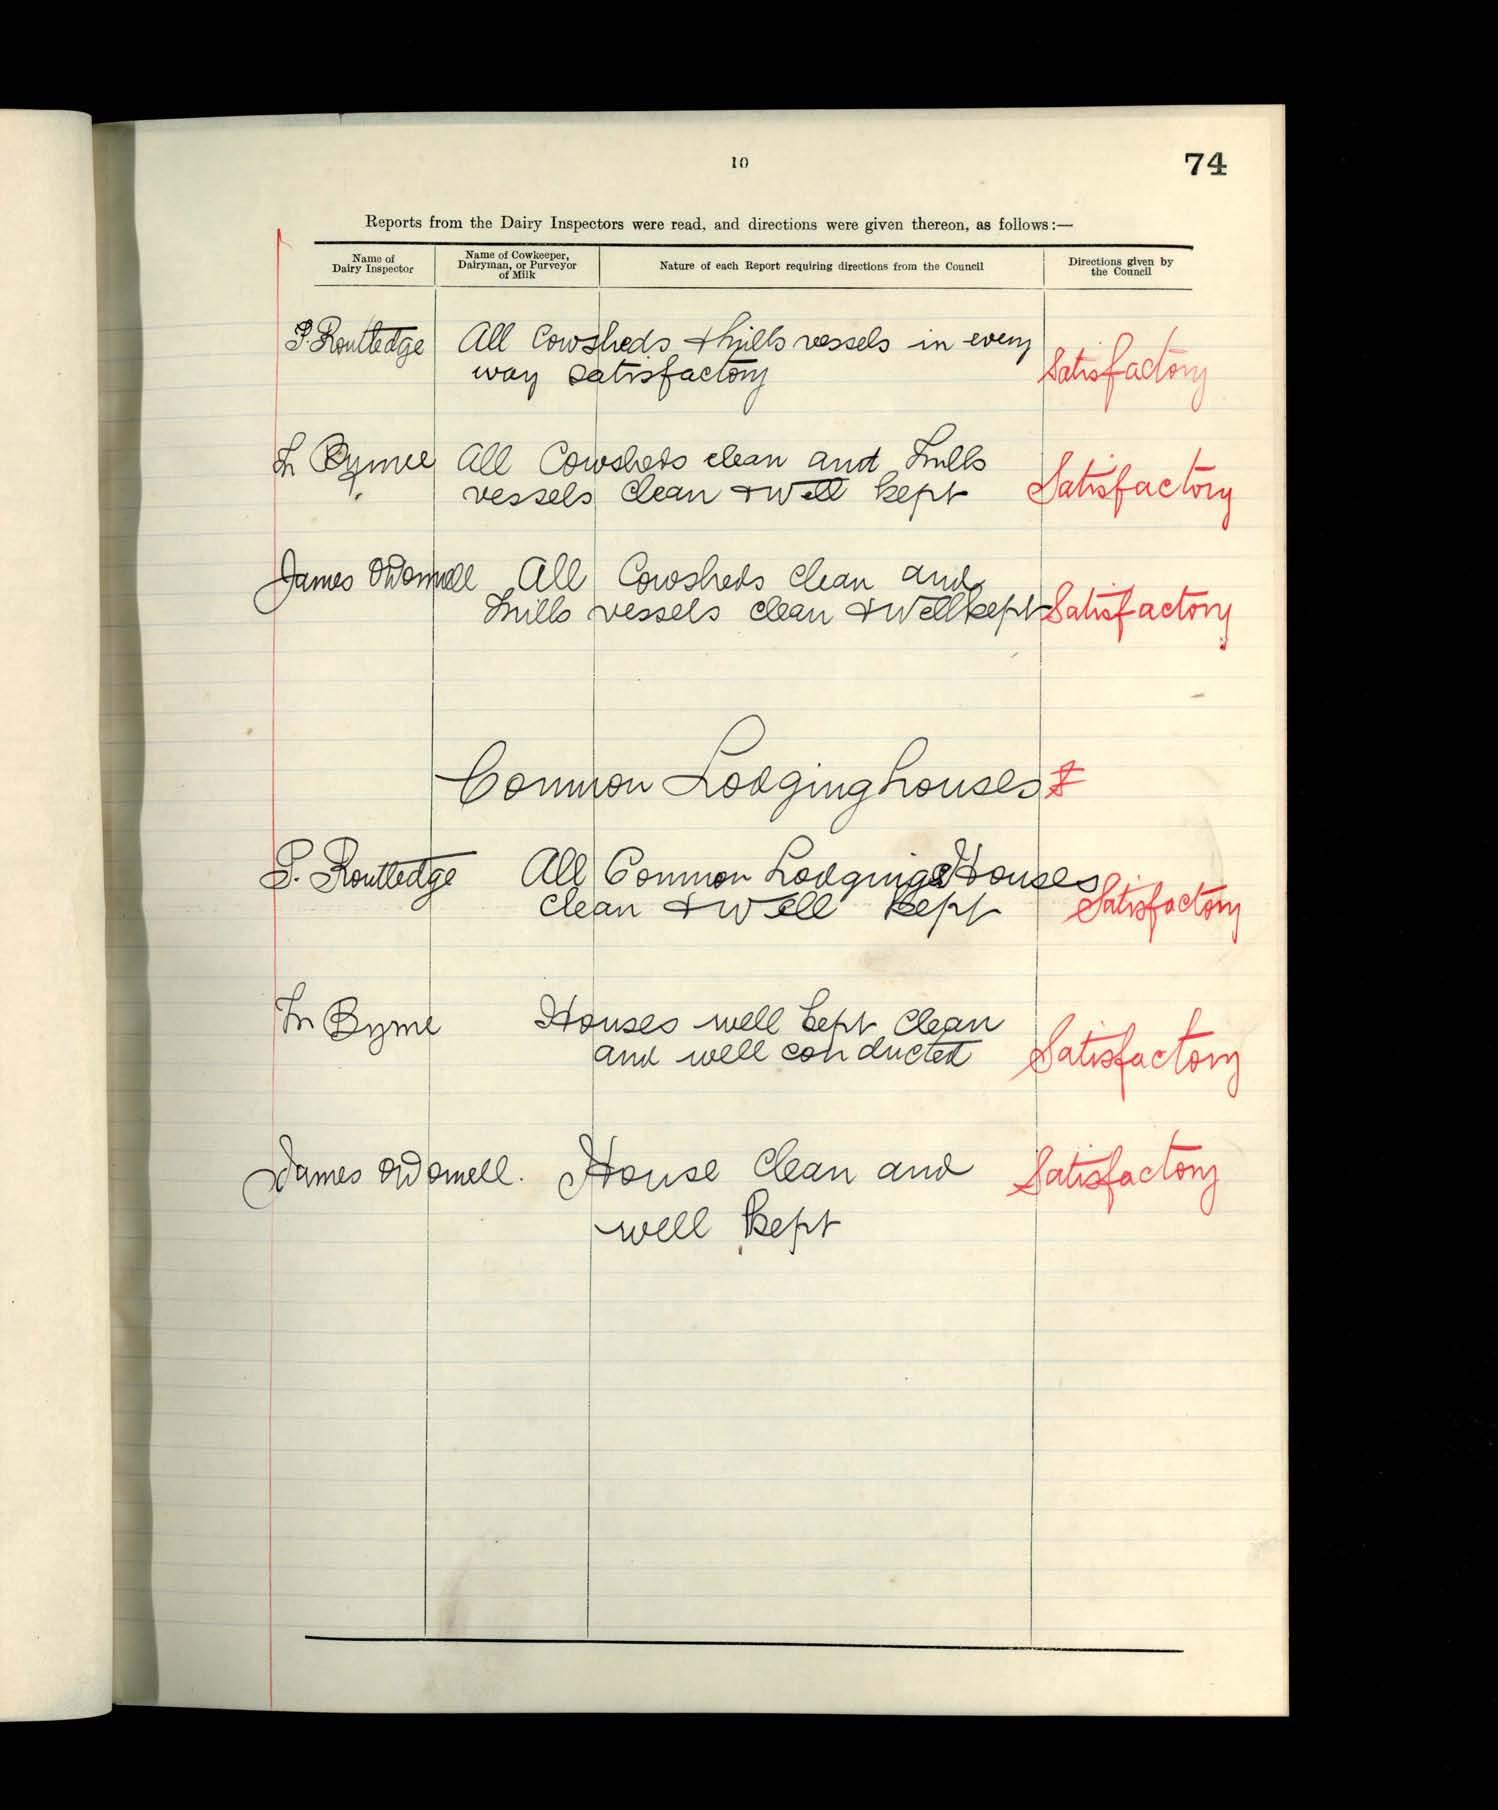 10
74
Reports from the Dairy Inspectors were read, and directions were given thereon, as follows:—
Name of
Dairy Inspector
Name of Cowkeeper,
Dairyman, or Purveyor
of Milk
Nature of each Report requiring directions from the Council
Directions given by
the Council
P. Routledge All Cowsheds + milks vessels in every
way satisfactory
Satisfactory
Byrne All Cowsheds clean and milks
vessels clean + well kept Satisfactory
James ODonnell All Cowsheds clean and
milks vessels clean + well kept Satisfactory
Common Lodging houses
P. Routledge All Common Lodging Houses
clean + well kept Satisfactory
Byrne Houses well kept clean
and well conducted Satisfactory
James ODonnell. House clean and Satisfactory
well kept